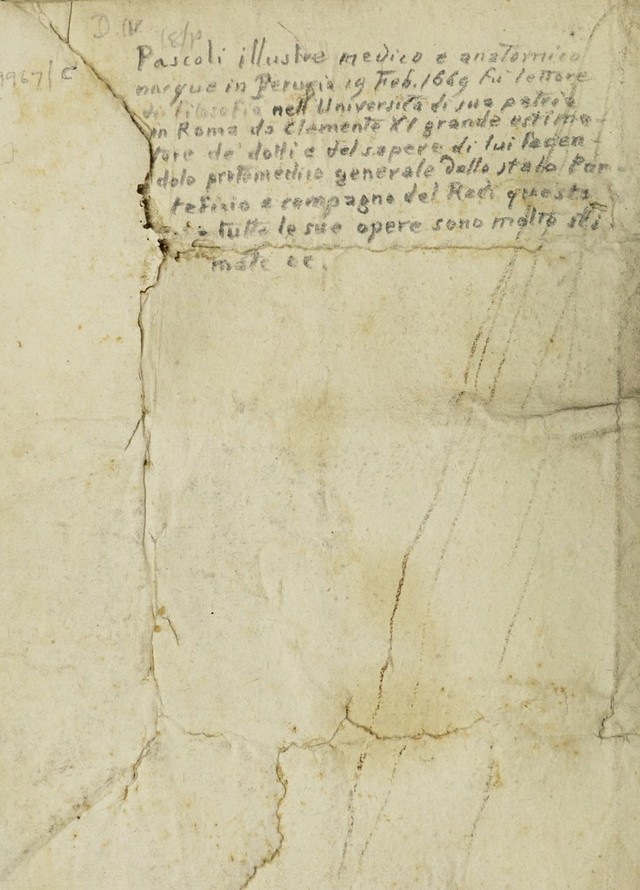 D. IV
18/P
9967/C
Pascoli illustre medico e anatomico
nacque in Perugia 19 Feb. 1669 fù lettore
di filosofia nell'Università di sua patria
in Roma da Clemente XI grande estima-
tore de' dotti e del sapere di lui facen-
dolo protomedico generale dello stato Pon-
tefizio e compagno del Redi questa
tutte le sue opere sono molto sti
mate ec.